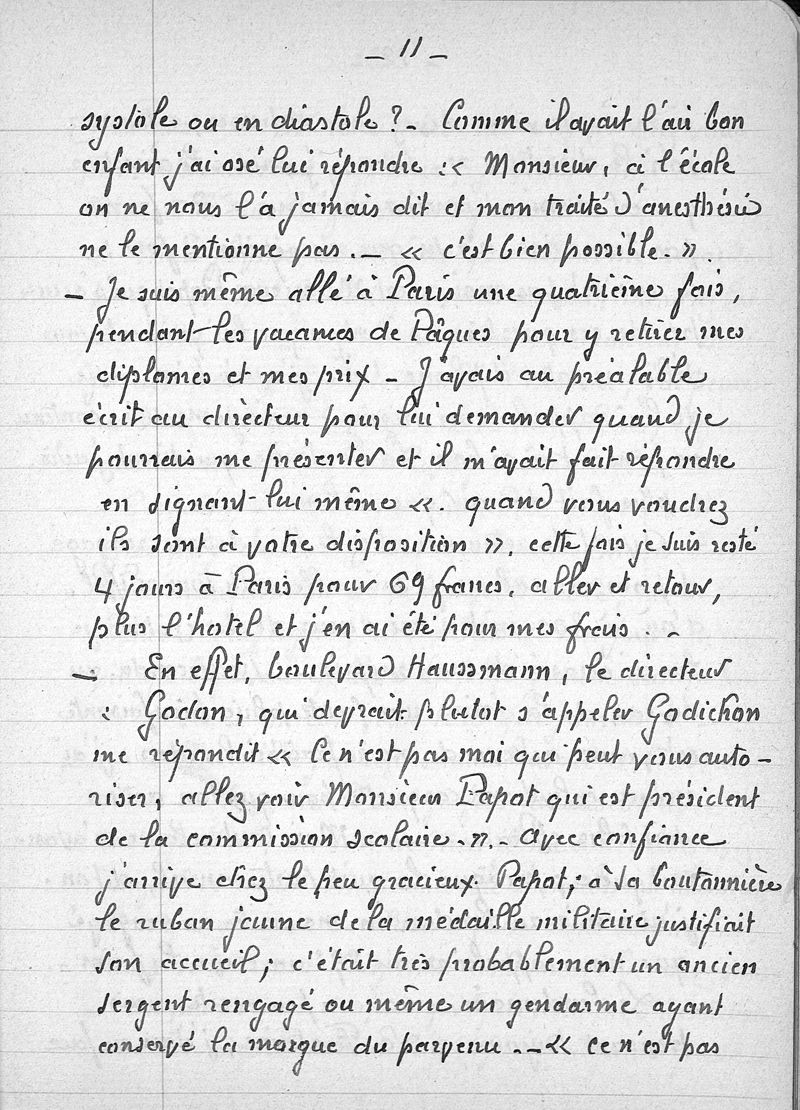 — 11 —
systole ou en diastole ? — Comme il avait l'air bon
enfant j'ai osé lui répondre : « Monsieur, à l'école
on ne nous l'a jamais dit et mon traité d'anesthésie
ne le mentionne pas. — « c'est bien possible. ».
— Je suis même allé à Paris une quatrième fois,
pendant les vacances de Pâques pour y retirer mes
diplomes et mes prix — J'avais au préalable
écrit au directeur pour lui demander quand je
pourrais me présenter et il m'avait fait répondre
en signant lui même «. quand vous voudrez
ils sont à votre disposition ». cette fois je suis resté
4 jours à Paris pour 69 francs, aller et retour,
plus l'hotel et j'en ai été pour mes frais. —
— En effet, boulevard Haussmann, le directeur
: Godon, qui devrait plutot s'appeler Godichon
me répondit « Ce n'est pas moi qui peut vous auto-
riser, allez voir Monsieur Papot qui est président
de la commission scolaire. ». — avec confiance
j'arrive chez le peu gracieux Papot ; à sa boutonnière
le ruban jaune de la médaille militaire justifiait
son accueil ; c'était très probablement un ancien
sergent rengagé ou même un gendarme ayant
conservé la morgue du parvenu. — « ce n'est pas